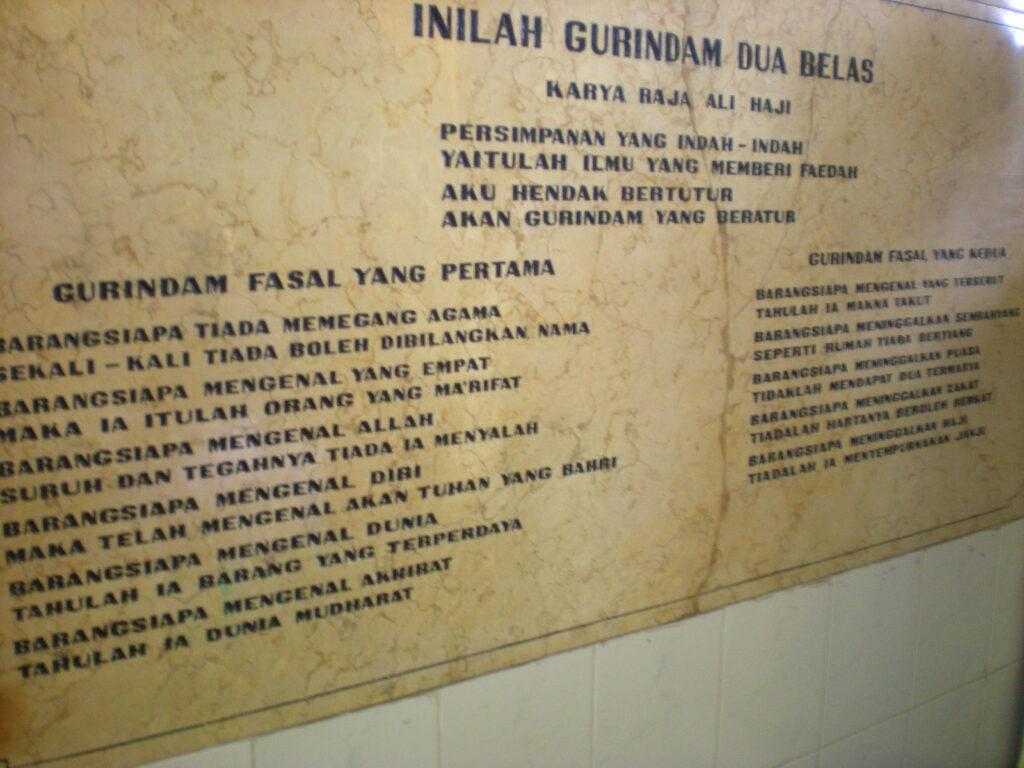 INILAH GURINDAM DUA BELAS
KARYA RAJA ALI HAJI
PERSIMPANAN YANG INDAH - INDAH
YAITULAH ILMU YANG MEMBERI FAEDAH
AKU HENDAK BERTUTUR
AKAN GURINDAM YANG BERATUR
GURINDAM FASAL YANG PERTAMA
BARANGSIAPA TIADA MEMEGANG AGAMA
SEKALI - KALI TIADA BOLEH DIBILANGKAN NAMA
BARANGSIAPA MENGENAL YANG EMPAT
MAKA IA ITULAH ORANG YANG MA'RIFAT
BARANGSIAPA MENGENAL ALLAH
SURUH DAN TEGAHNYA TIADA IA MENYALAH
BARANGSIAPA MENGENAL DIRI
MAKA TELAH MENGENAL AKAN TUHAN YANG BAHRI
BARANGSIAPA MENGENAL DUNIA
TAHULAH IA BARANG YANG TERPERDAYA
BARANGSIAPA MENGENAL AKHIRAT
TAHULAH IA DUNIA MUDHARAT
GURINDAM FASAL YANG KEDUA
BARANGSIAPA MENGENAL YANG TERSEBUT
TAHULAH IA MAKNA TAKUT
BARANGSIAPA MENINGGALKAN SEMBAHYANG
SEPERTI RUMAH TIADA BERTIANG
BARANGSIAPA MENINGGALKAN PUASA
TIDAKLAH MENDAPAT DUA TERMASYA
BARANGSIAPA MENINGGALKAN ZAKAT
TIADALAH HARTANYA BEROLEH BERKAT
BARANGSIAPA MENINGGALKAN HAJI
TIADALAH IA MENYEMPURNAKAN JANJI